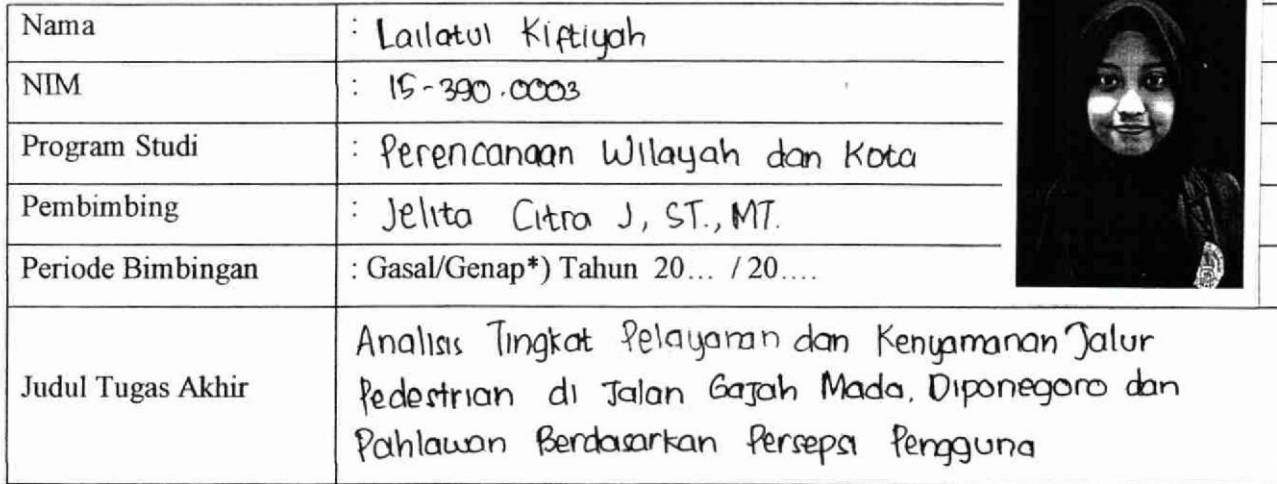 Nama : Lailatul Kiftiyah
NIM : 15-390.0003
Program Studi : Perencanaan Wilayah dan Kota
Pembimbing : Jelita Citra J, ST., MT.
Periode Bimbingan : Gasal/Genap*) Tahun 20... / 20....
Judul Tugas Akhir
Analisis Tingkat Pelayanan dan Kenyamanan Jalur
Pedestrian di Jalan Gajah Mada, Diponegoro dan
Pahlawan Berdasarkan Persepsi Pengguna